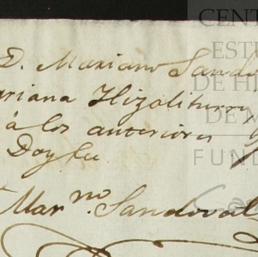 D. Mariano Sando
ariana Hizoliturri
à los anteriores
Doy fee
Marno. Sandoval
CENT
EST
DE HI
DE M
FUND